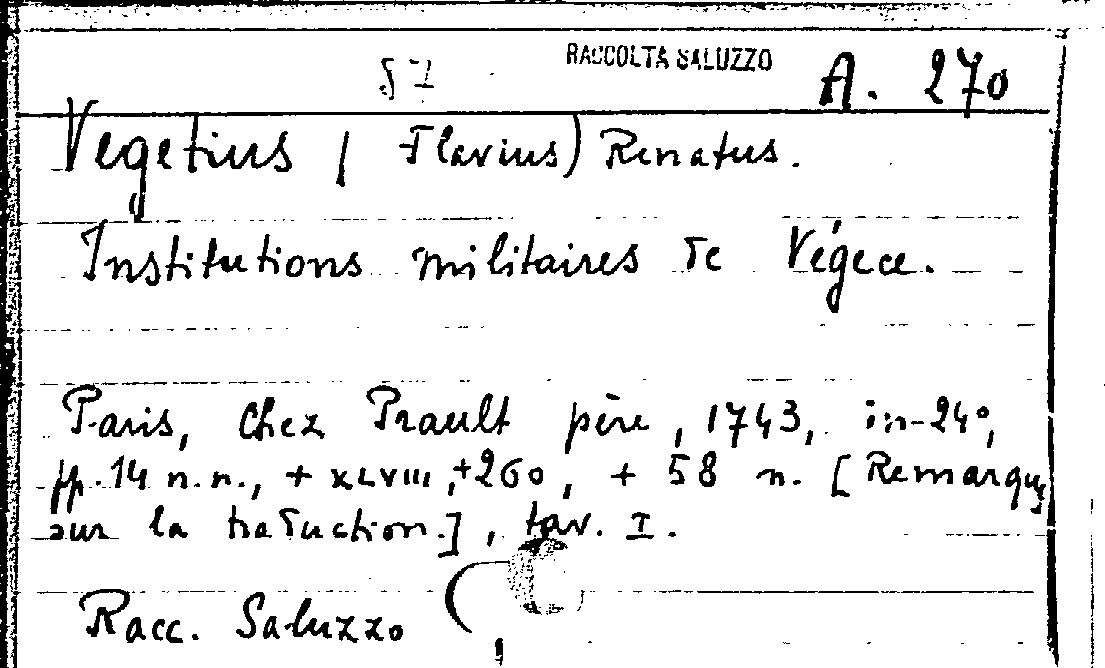 RACCOLTA SALUZZO
57 A. 270
Vegetius (Flavius) Renatus.
Institutions militaires de Végece.
Paris, chez Prault père, 1743, in-24°,
pp. 14 n.n., + XLVIII, +260, + 58 n. [Remarques
sur la traduction.], tav. I.
Racc. Saluzzo